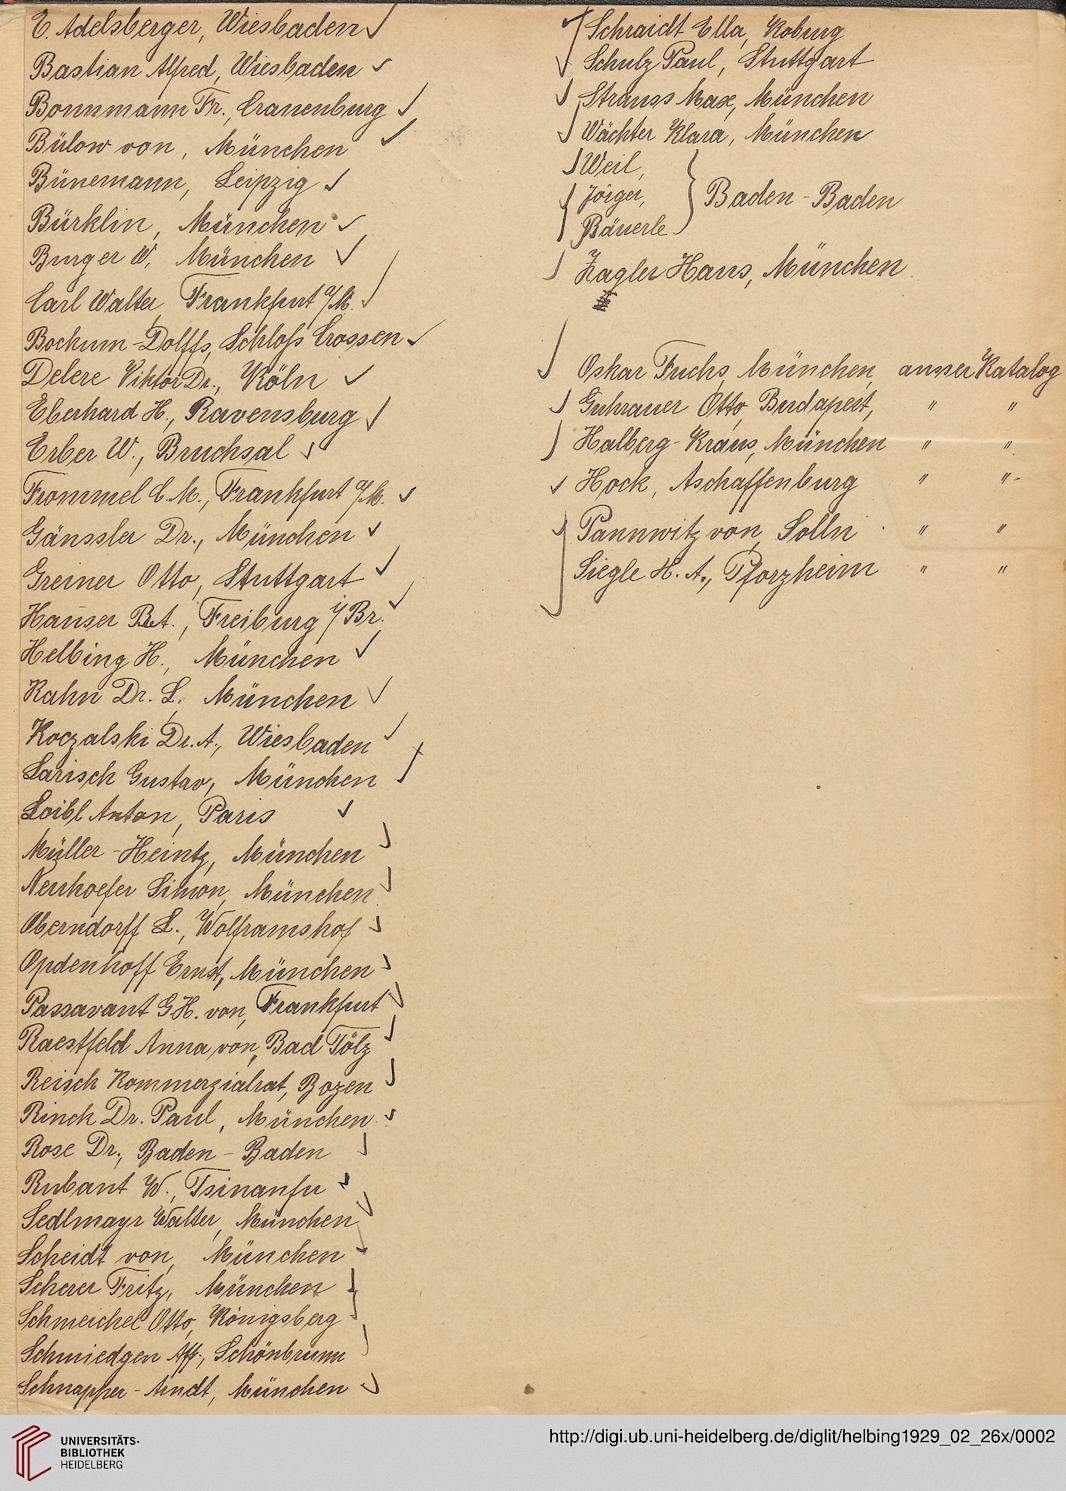 E. Adelsberger, Wiesbaden
Bastian Alfred, Wiesbaden
Bonnmann Fr., Cranenburg
Bülow von, München
Bünemann, Leipzig
Bürklin, München
Burger W, München
Carl Walter, Frankfurt a/M.
Bochum-Dolffs, Schloß Crossen
Delere Viktor Dr., Köln
Eberhard H., Ravensburg
Erber W., Bruchsal
Frommel C.M., Frankfurt a/M.
Gänssler Dr., München
Greiner Otto, Stuttgart
Hauser Rat., Freiburg i/Br.
Helbing H., München
Kahn Dr. L. München
Koczalski Dr. A., Wiesbaden
Larisch Gustav, München
Loibl Anton, Paris
Müller-Heintz, München
Neuhoefer Simon, München
Oberndorff L., Wolframshof
Opdenhoff Ernst, München
Passavant G.H. von, Frankfurt
Raestfeld Anna von, Bad Tölz
Reisch Kommerzialrat, Bozen
Rinck Dr. Paul, München
Rose Dr., Baden-Baden
Rubant W., Tsinanfu
Sedlmayr Walter, München
Scheidt von, München
Scherer Fritz, München
Schmeichel Otto, Königsberg
Schmiedgen Aff., Schönbrunn
Schnapper-Arndt, München
Schraidt Ella, Koburg
Schulz Paul, Stuttgart
Strauss Max, München
Wächter Klara, München
Weil,
Jörger, } Baden-Baden
Bäuerle
Zagler Hans, München
Oskar Fuchs, München, ausser Katalog
Guhrauer Otto, Budapest, " "
Halberg-Kraus, München " "
Hock, Aschaffenburg " "
Pannwitz von, Solln " "
Siegle H. A., Pforzheim " "
UNIVERSITÄTS-
BIBLIOTHEK
HEIDELBERG
http://digi.ub.uni-heidelberg.de/diglit/helbing1929_02_26x/0002